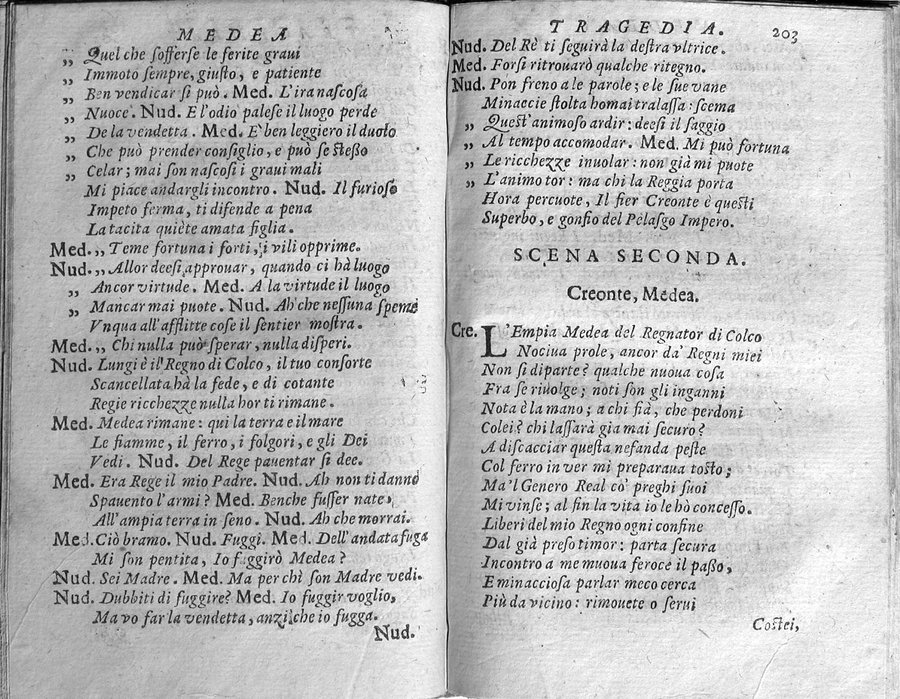 MEDEA
„ Quel che soſferse le ferite graui
„ Immoto ſempre, giuſto, e patiente
„ Ben vendicar ſi può. Med. L'ira naſcoſa
„ Nuoce. Nud. E l'odio paleſe il luogo perde
„ De la vendetta. Med. E' ben leggiero il duolo
„ Che può prender conſiglio, e può ſe ſteßo
„ Celar; mai ſon naſcoſi i graui mali
Mi piace andargli incontro. Nud. Il furioſo
Impeto ferma, ti difende a pena
La tacita quiète amata figlia.
Med. „ Teme fortuna i forti, i vili opprime.
Nud. „ Allor deeſi approuar, quando ci hà luogo
„ Ancor virtude. Med. A la virtude il luogo
„ Mancar mai puote. Nud. Ah che neſſuna ſpeme
Vnqua all'afflitte coſe il ſentier moſtra.
Med. „ Chi nulla può ſperar, nulla diſperi.
Nud. Lungi è il Regno di Colco, il tuo conforte
Scancellata hà la fede, e di cotante
Regie ricchezze nulla hor ti rimane.
Med. Medea rimane: qui la terra e il mare
Le fiamme, il ferro, i folgori, e gli Dei
Vedi. Nud. Del Rege pauentar ſi dee.
Med. Era Rege il mio Padre. Nud. Ah non ti danno
Spauento l'armi? Med. Benche fuſſer nate,
All'ampia terra in ſeno. Nud. Ah che morrai.
Med. Ciò bramo. Nud. Fuggi. Med. Dell'andata fuga
Mi ſon pentita, Io fuggirò Medea?
Nud. Sei Madre. Med. Ma per chì ſon Madre vedi.
Nud. Dubbiti di fuggire? Med. Io fuggir voglio,
Ma vo far la vendetta, anzi che io fugga.
Nud.
TRAGEDIA. 203
Nud. Del Rè ti ſeguirà la deſtra vltrice.
Med. Forſi ritrouarò qualche ritegno.
Nud. Pon freno a le parole; e le ſue vane
Minaccie ſtolta homai tralaſſa: ſcema
„ Queſt'animoſo ardir: deeſi il ſaggio
„ Al tempo accomodar. Med. Mi può fortuna
„ Le ricchezze inuolar: non già mi puote
„ L'animo tor: ma chi la Reggia porta
Hora percuote, Il fier Creonte è queſti
Superbo, e gonfio del Pelaſgo Impero.
SCENA SECONDA.
Creonte, Medea.
Cre. L'Empia Medea del Regnator di Colco
Nociua prole, ancor da' Regni miei
Non ſi diparte? qualche nuoua coſa
Fra ſe riuolge; noti ſon gli inganni
Nota è la mano; a chi fià, che perdoni
Colei? chi laſſarà gia mai ſecuro?
A diſcacciar queſta nefanda peſte
Col ferro in ver mi preparaua toſto;
Ma'l Genero Real co' preghi ſuoi
Mi vinſe; al fin la vita io le hò conceſſo.
Liberi del mio Regno ogni confine
Dal già preſo timor: parta ſecura
Incontro a me muoua feroce il paßo,
E minaccioſa parlar meco cerca
Più da vicino: rimouete o ſerui
Coſtei,